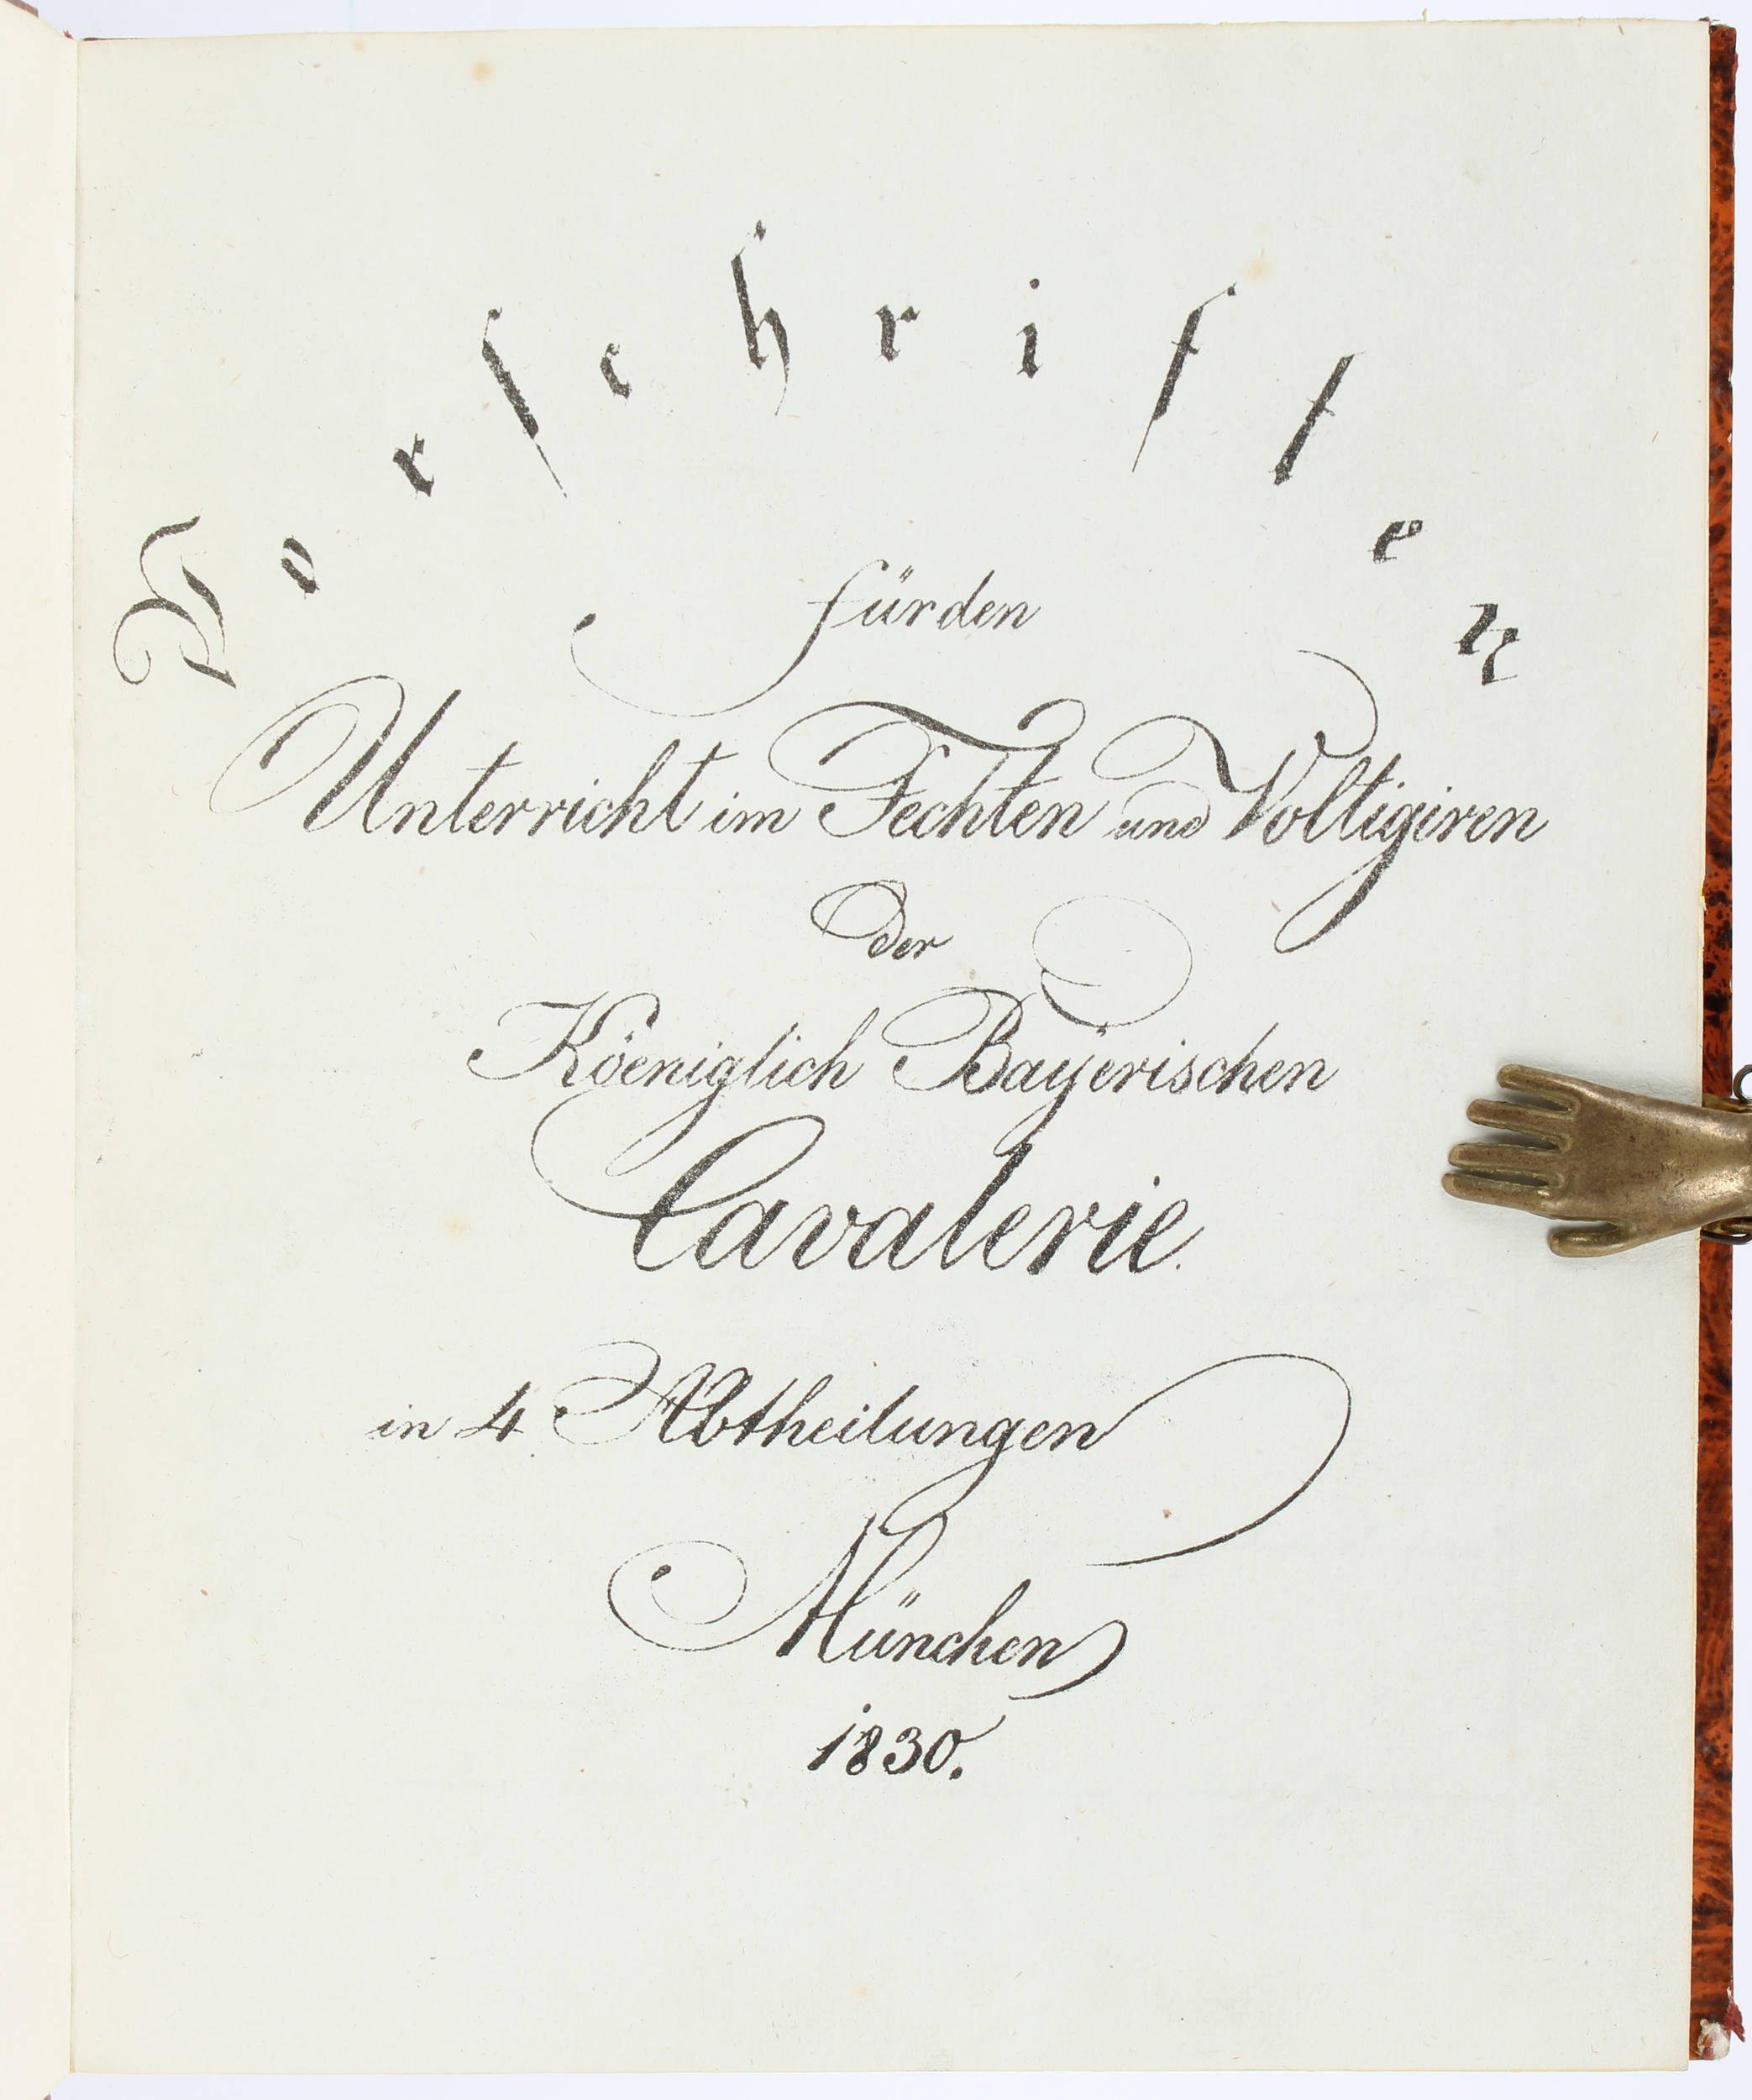 Vorschriften
für den
Unterricht im Fechten und Voltigiren
der
Köeniglich Bayerischen
Cavalerie.
in 4 Abtheilungen
München
1830.